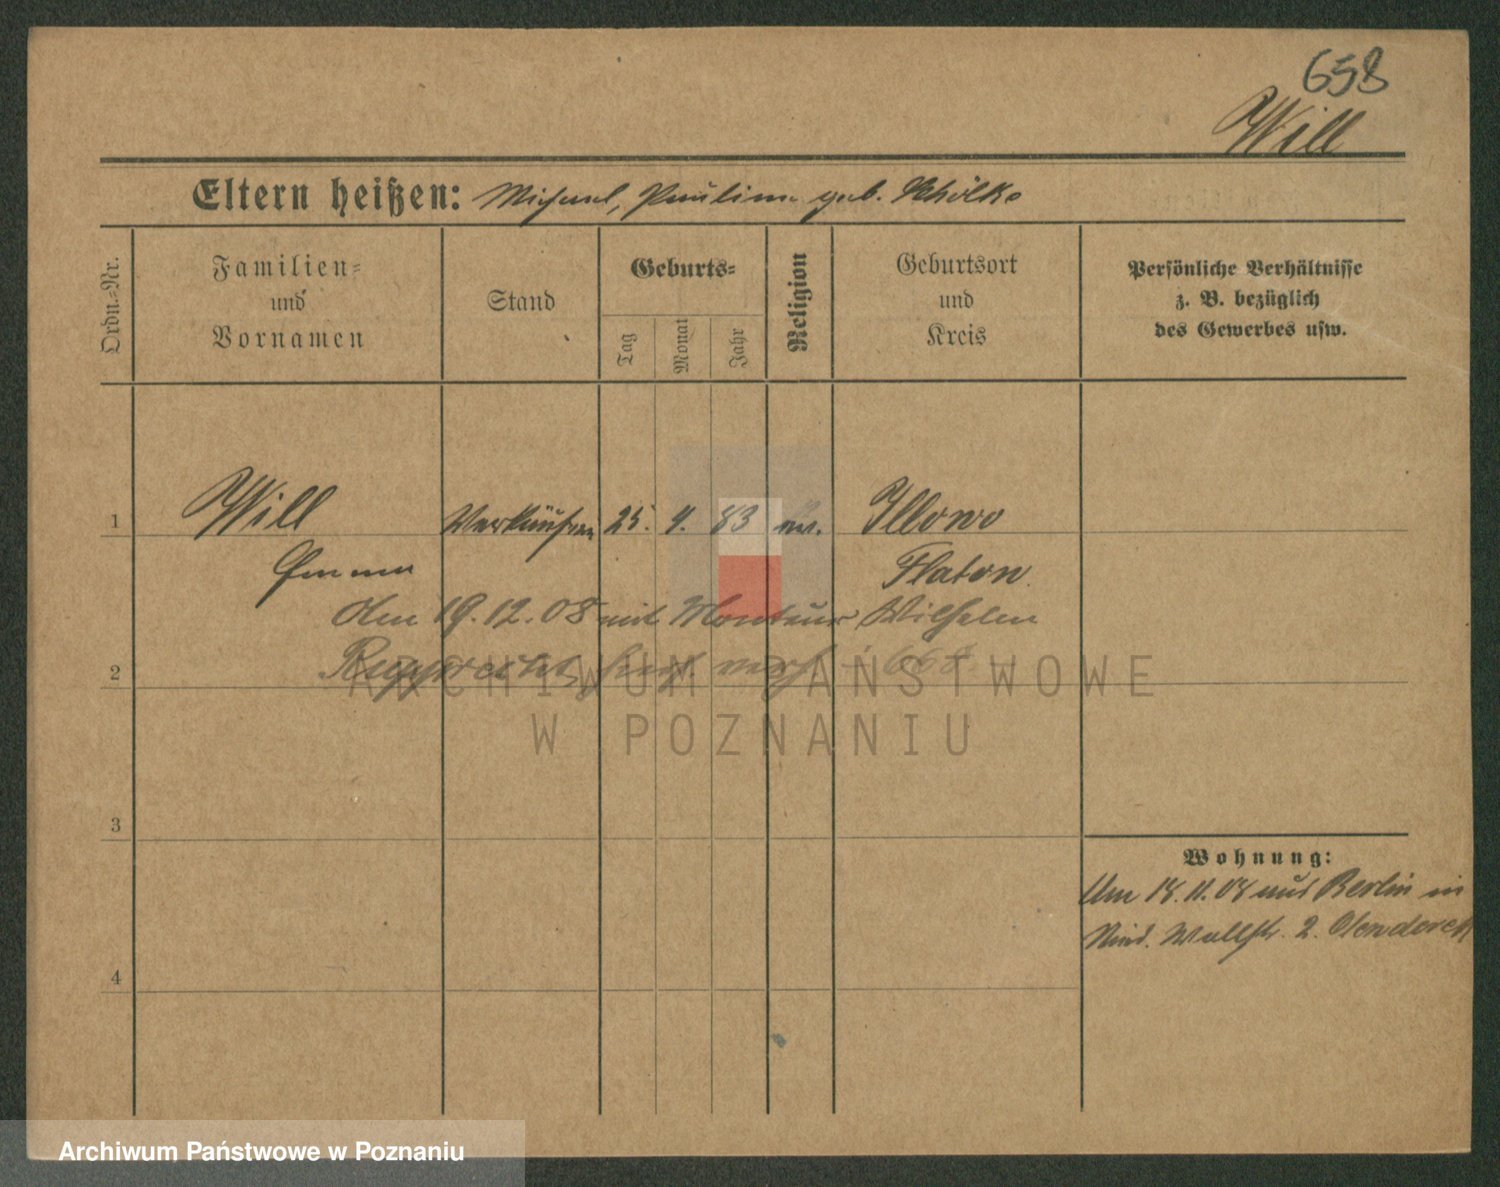 658
Will
Eltern heißen: Michael, Pauline geb.
Ordn.-Nr.
Familien-
und
Vornamen
Stand
Geburts-
Tag
Monat
Jahr
Religion
Geburtsort
und
Kreis
Persönliche Verhältnisse
z. B. bezüglich
des Gewerbes usw.
1 Will Verkäuferin 25. 4. 83 ev. Illowo
Emma Flatow
Am 19.12.08 mit Monteur Wilhelm
2 Rupprecht, hier verh. 668
ARCHIWUM PAŃSTWOWE
W POZNANIU
3
Wohnung:
Am 18.11.08 aus Berlin in
Wallstr. 2.
4
Archiwum Państwowe w Poznaniu